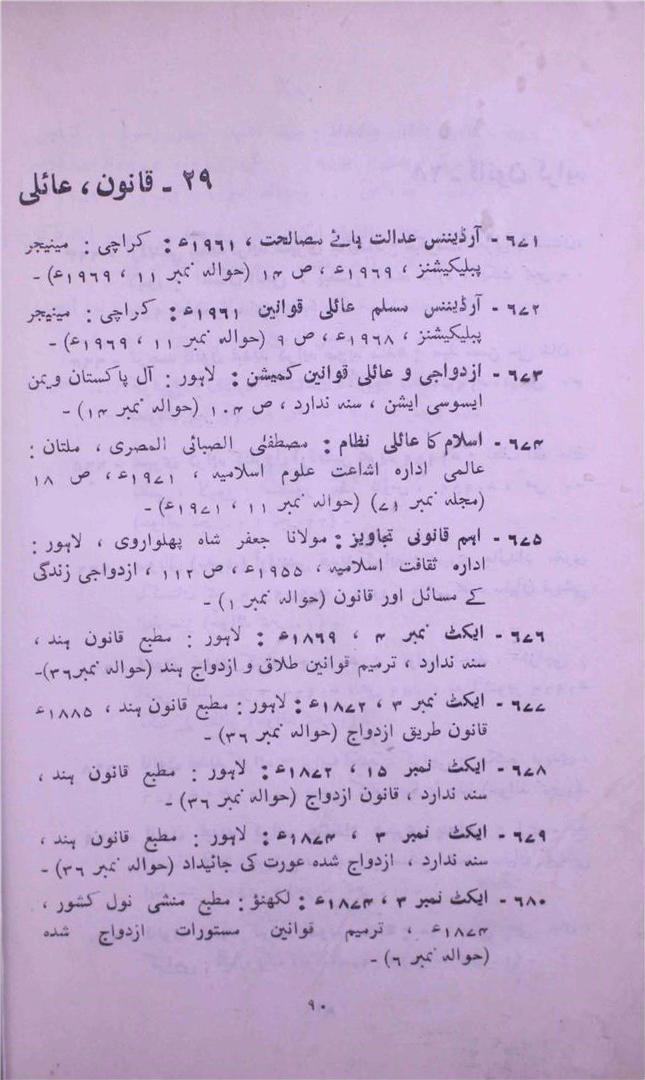 ۲۹ - قانون ، عائلی
۶۷۱ - آرڈیننس عدالت ہائے مصالحت ، ۱۹۶۱ء : کراچی : مینیجر
پبلیکیشنز ، ۱۹۶۹ء ، ص ۱۴ (حوالہ نمبر ۱۱ ، ۱۹۶۹ء) -
۶۷۲ - آرڈیننس مسلم عائلی قوانین ۱۹۶۱ء : کراچی : مینیجر
پبلیکیشنز ، ۱۹۶۸ء ، ص ۹ (حوالہ نمبر ۱۱ ، ۱۹۶۹ء) -
۶۷۳ - ازدواجی و عائلی قوانین کمیشن : لاہور : آل پاکستان ویمن
ایسوسی ایشن ، سنہ ندارد ، ص ۱۰۴ (حوالہ نمبر ۱۴) -
۶۷۴ - اسلام کا عائلی نظام : مصطفیٰ الصبائی المصری ، ملتان :
عالمی ادارہ اشاعت علوم اسلامیہ ، ۱۹۷۱ء ، ص ۱۸
(مجلہ نمبر ۷۱) (حوالہ نمبر ۱۱ ، ۱۹۷۱ء) -
۶۷۵ - اہم قانونی تجاویز : مولانا جعفر شاہ پھلواروی ، لاہور :
ادارہ ثقافت اسلامیہ ، ۱۹۵۵ء ، ص ۱۱۲ ، ازدواجی زندگی
کے مسائل اور قانون (حوالہ نمبر ۱) -
۶۷۶ - ایکٹ نمبر ۴ ، ۱۸۶۹ء : لاہور : مطبع قانون ہند ،
سنہ ندارد ، ترمیم قوانین طلاق و ازدواج ہند (حوالہ نمبر ۳۶) -
۶۷۷ - ایکٹ نمبر ۳ ، ۱۸۷۲ء : لاہور : مطبع قانون ہند ، ۱۸۸۵ء
قانون طریق ازدواج (حوالہ نمبر ۳۶) -
۶۷۸ - ایکٹ نمبر ۱۵ ، ۱۸۷۲ء : لاہور : مطبع قانون ہند ،
سنہ ندارد ، قانون ازدواج (حوالہ نمبر ۳۶) -
۶۷۹ - ایکٹ نمبر ۳ ، ۱۸۷۴ء : لاہور : مطبع قانون ہند ،
سنہ ندارد ، ازدواج شدہ عورت کی جائیداد (حوالہ نمبر ۳۶) -
۶۸۰ - ایکٹ نمبر ۳ ، ۱۸۷۴ء : لکھنؤ : مطبع منشی نول کشور ،
۱۸۷۴ء ، ترمیم قوانین مستورات ازدواج شدہ
(حوالہ نمبر ۶) -
۹۰